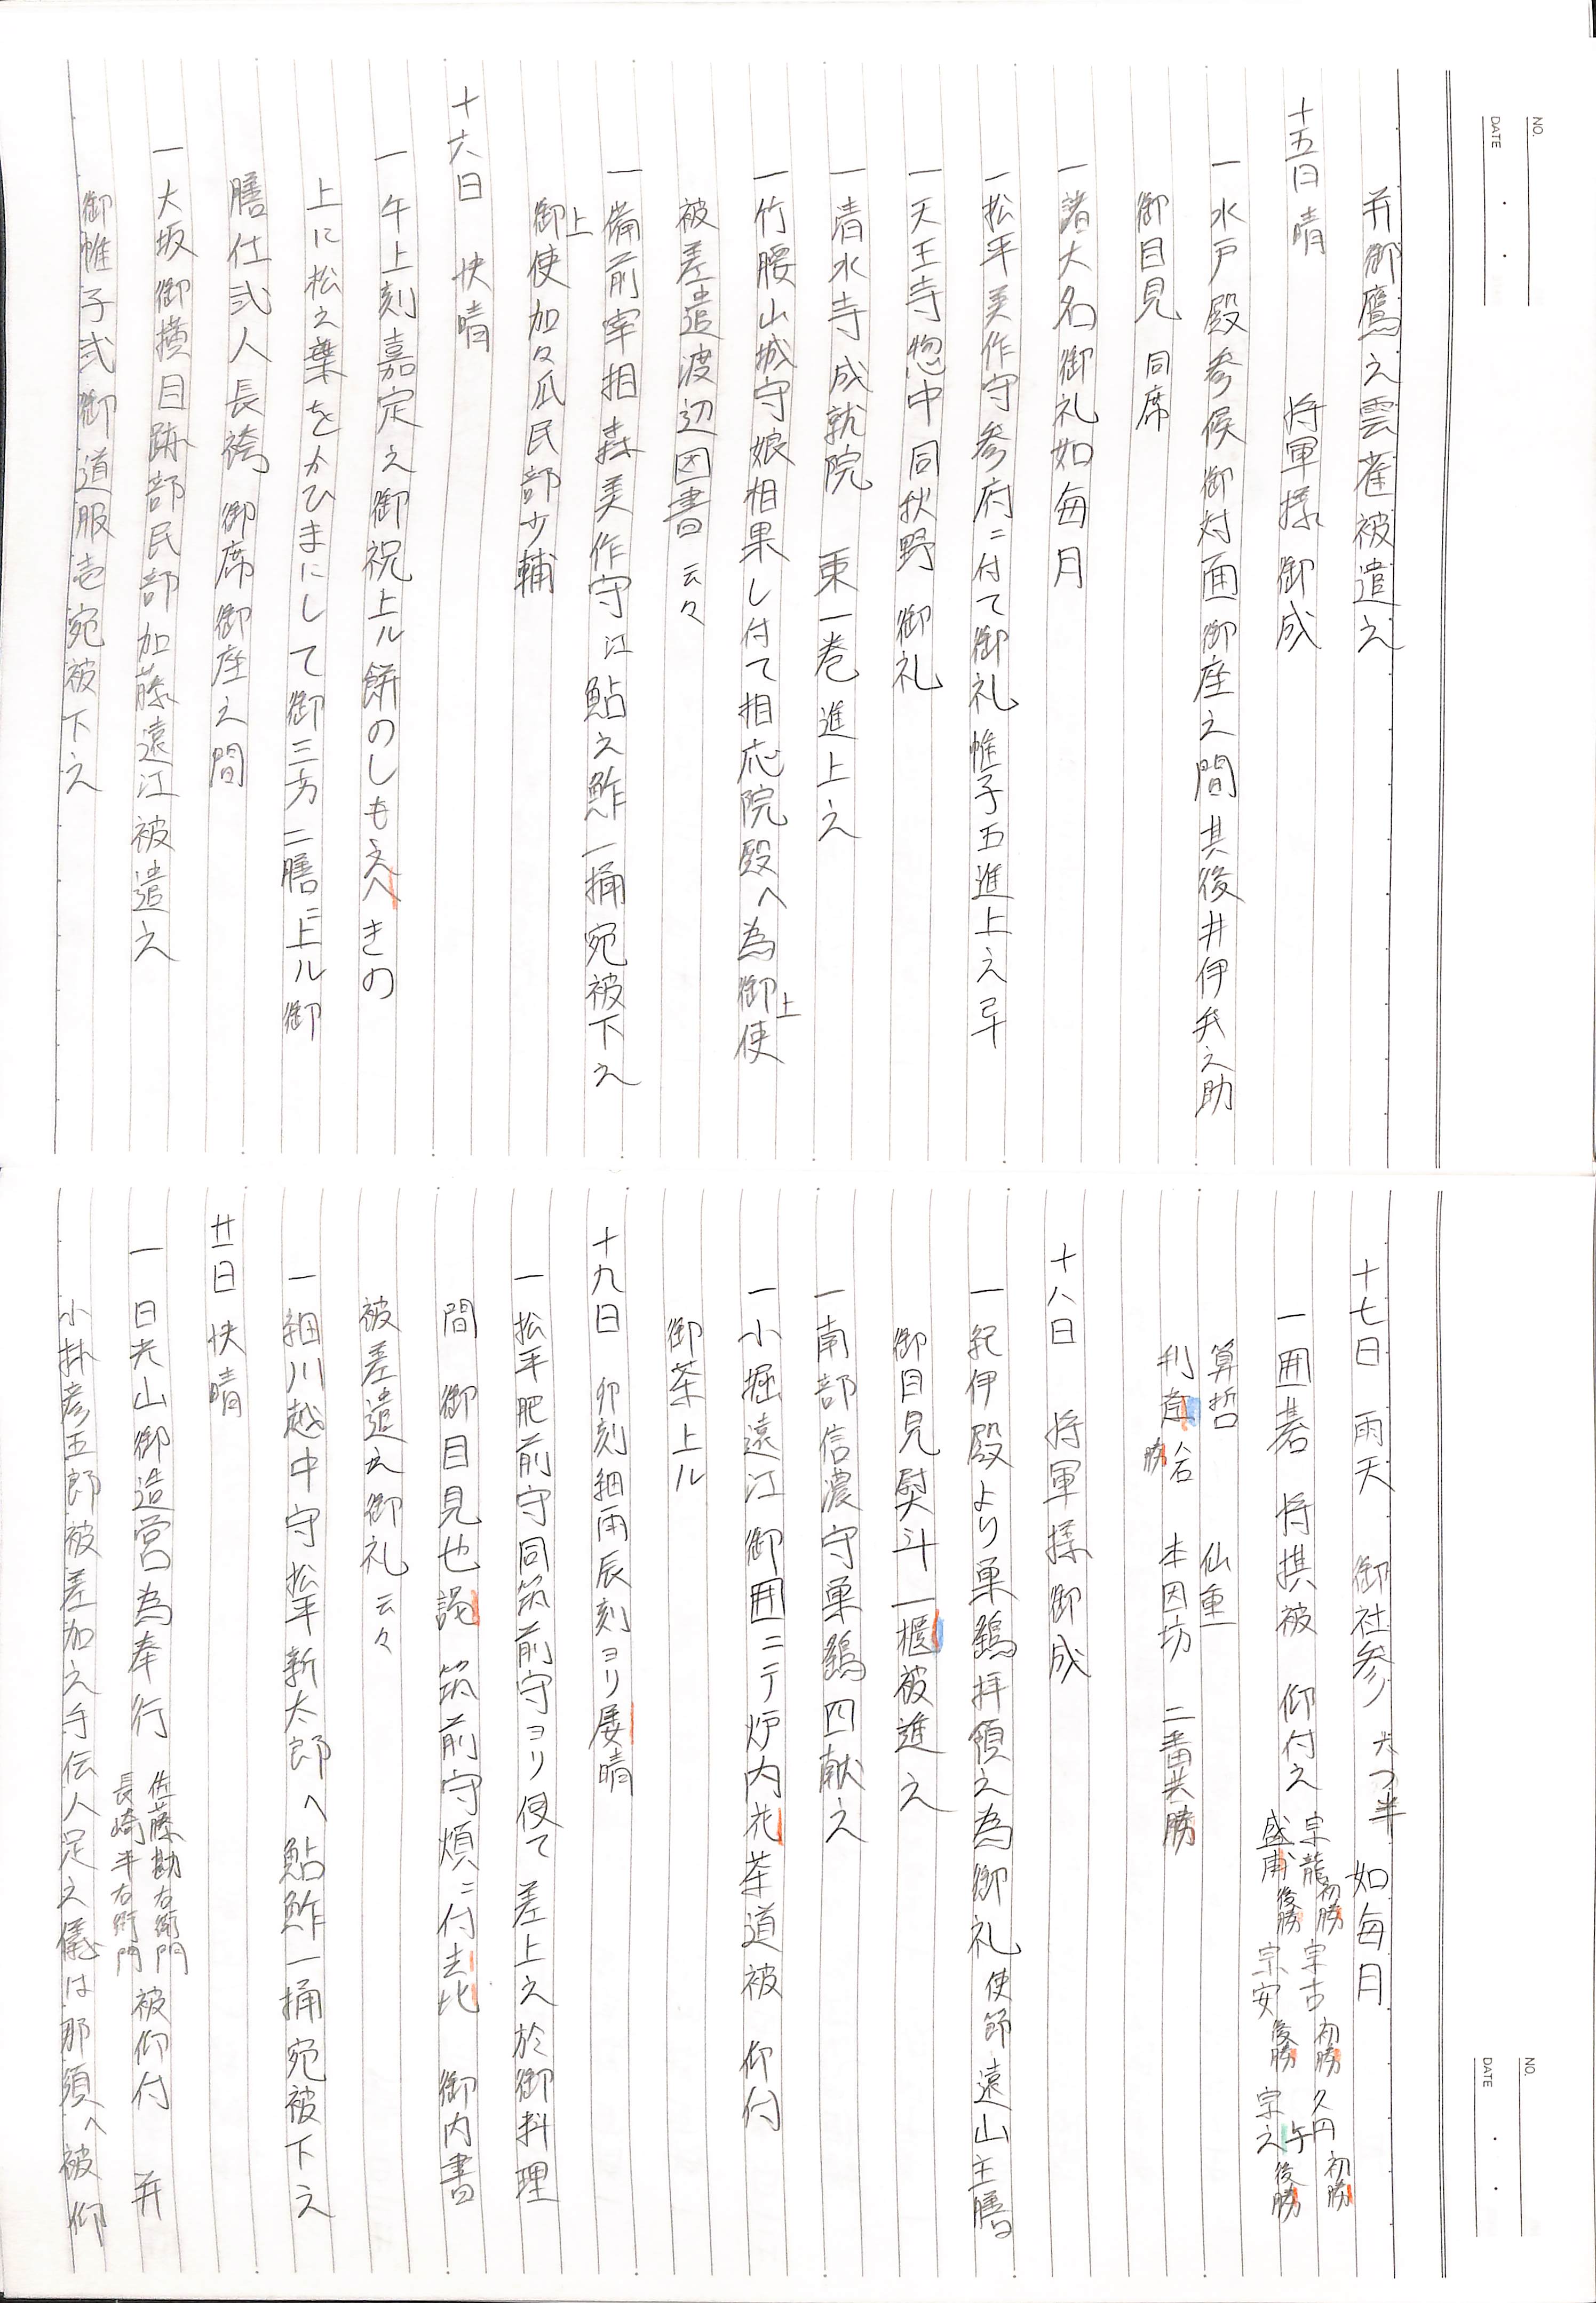 NO.
DATE
并御鷹之雲雀被遣之
十五日 晴 将軍様 御成
一 水戸殿参候御対面御座之間其後井伊兵之助
御目見 同席
一諸大名御礼如毎月
一松平美作守参府ニ付て御礼 帷子五進上之
一天王寺惣中 同秋野 御礼
一清水寺成就院 束一巻進上之
一竹腰山城守娘相果し付て相応院殿へ為御上使
被差遣渡辺図書 云々
一備前宰相 森美作守江鮎之鮓一桶宛被下之
御上使加々爪民部少輔
十六日 快晴
一 午上刻嘉定之御祝上ル餅のしもえへきの
上に松之葉をかひまにして御三方ニ膳ニ上ル御
膳仕弐人長袴 御席御座之間
一 大坂御横目跡部民部加藤遠江被遣之
御帷子弐御道服壱宛被下之
NO.
DATE
十七日 雨天 御社参 六つ半 如毎月
一囲碁 将棋被 仰付之 宗龍初勝 宗古初勝 久円初勝
盛甫後勝 宗安後勝 宗与之後勝
算哲 仙重
利 合勝 本因坊 二番共勝
十八日 将軍様御成
一紀伊殿より巣鷂拝領之為御礼 使節遠山主膳
御目見熨斗一櫃被進之
一南部信濃守巣鷂四献之
一小堀遠江御囲ニテ炉内花茶道被 仰付
御茶上ル
十九日 卯刻細雨辰刻ヨリ屡晴
一松平肥前守同筑前守ヨリ使て差上之於御料理
間 御目見也 筑前守煩ニ付 御内書
被差遣御礼 云々
一細川越中守松平新太郎へ鮎鮓一桶宛被下之
廿一日 快晴
一 日光山御造営為奉行 佐藤勘右衛門 長崎半右衛門 被仰付 并
小林彦五郎被差加之手伝人足之儀は那須へ被仰